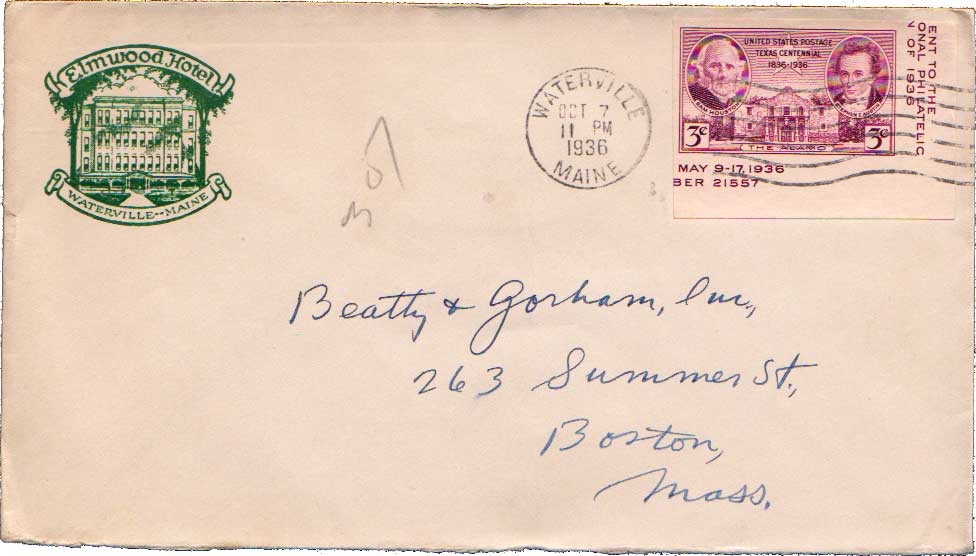 Elmwood Hotel
WATERVILLE--MAINE
WATERVILLE
OCT 7
11 PM
1936
MAINE
UNITED STATES POSTAGE
TEXAS CENTENNIAL
1836-1936
SAM HOUSTON
3¢
THE ALAMO
3¢
ENT TO THE
ONAL PHILATELIC
N OF 1936
MAY 9-17, 1936
BER 21557
Beatty & Gorham, Inc.,
263 Summer St.,
Boston,
Mass.